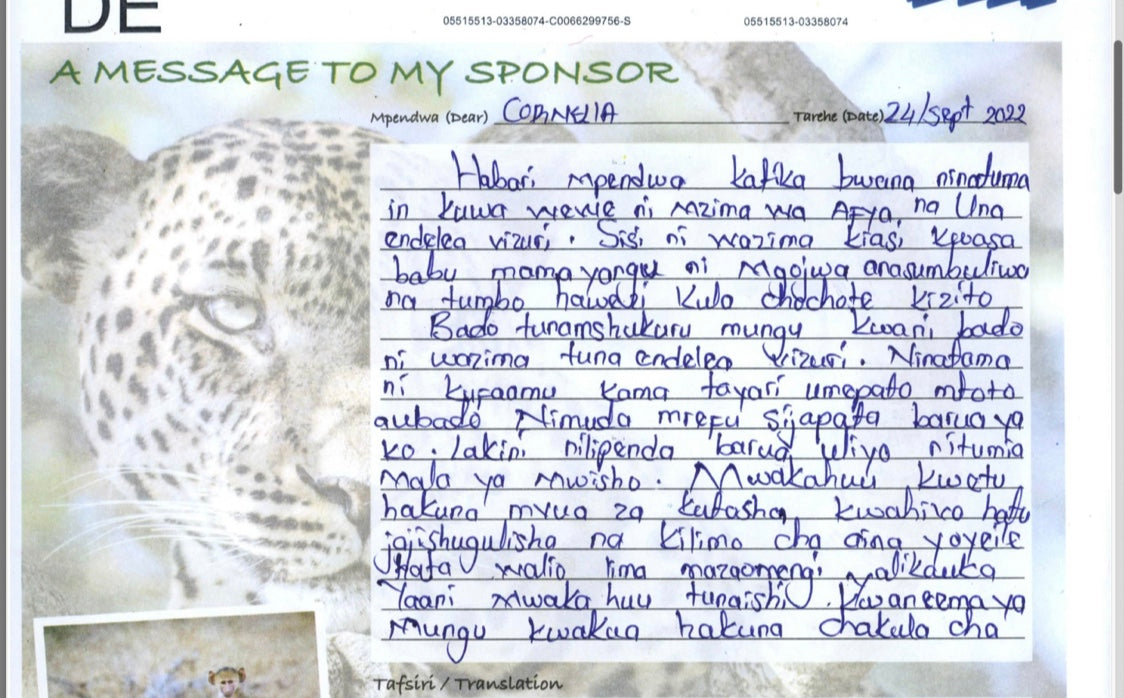 DE
05515513-03358074-C0066299756-S
05515513-03358074
A MESSAGE TO MY SPONSOR
Mpendwa (Dear) CORNELIA Tarehe (Date) 24/Sept 2022
Habari mpendwa katika bwana ninatuma
in kuwa wewe ni mzima wa AFya, na Una
endelea vizuri. Sisi ni wazima kiasi kwasa
babu mama yangu ni Mgojwa anasumbuliwa
na tumbo hawezi kula chochote kizito
Bado tunamshukuru mungu kwani bado
ni wazima tuna endelea vizuri. Ninatama
ni kufaamu kama tayari umepata mtoto
aubado Nimuda mrefu sijapata barua ya
ko. lakini nilipenda barua uliyo nitumia
Mala ya Mwisho. Mwakahuu kwetu
hakuna mvua za kutosha kwahiyo hatu
jajishugulisha na kilimo cha aina yoyeile
Hata walio lima mazaomengi yalikauka
Yaani Mwaka huu tunaishi kwaneema ya
Mungu kwakua hakuna chakula cha
Tafsiri / Translation